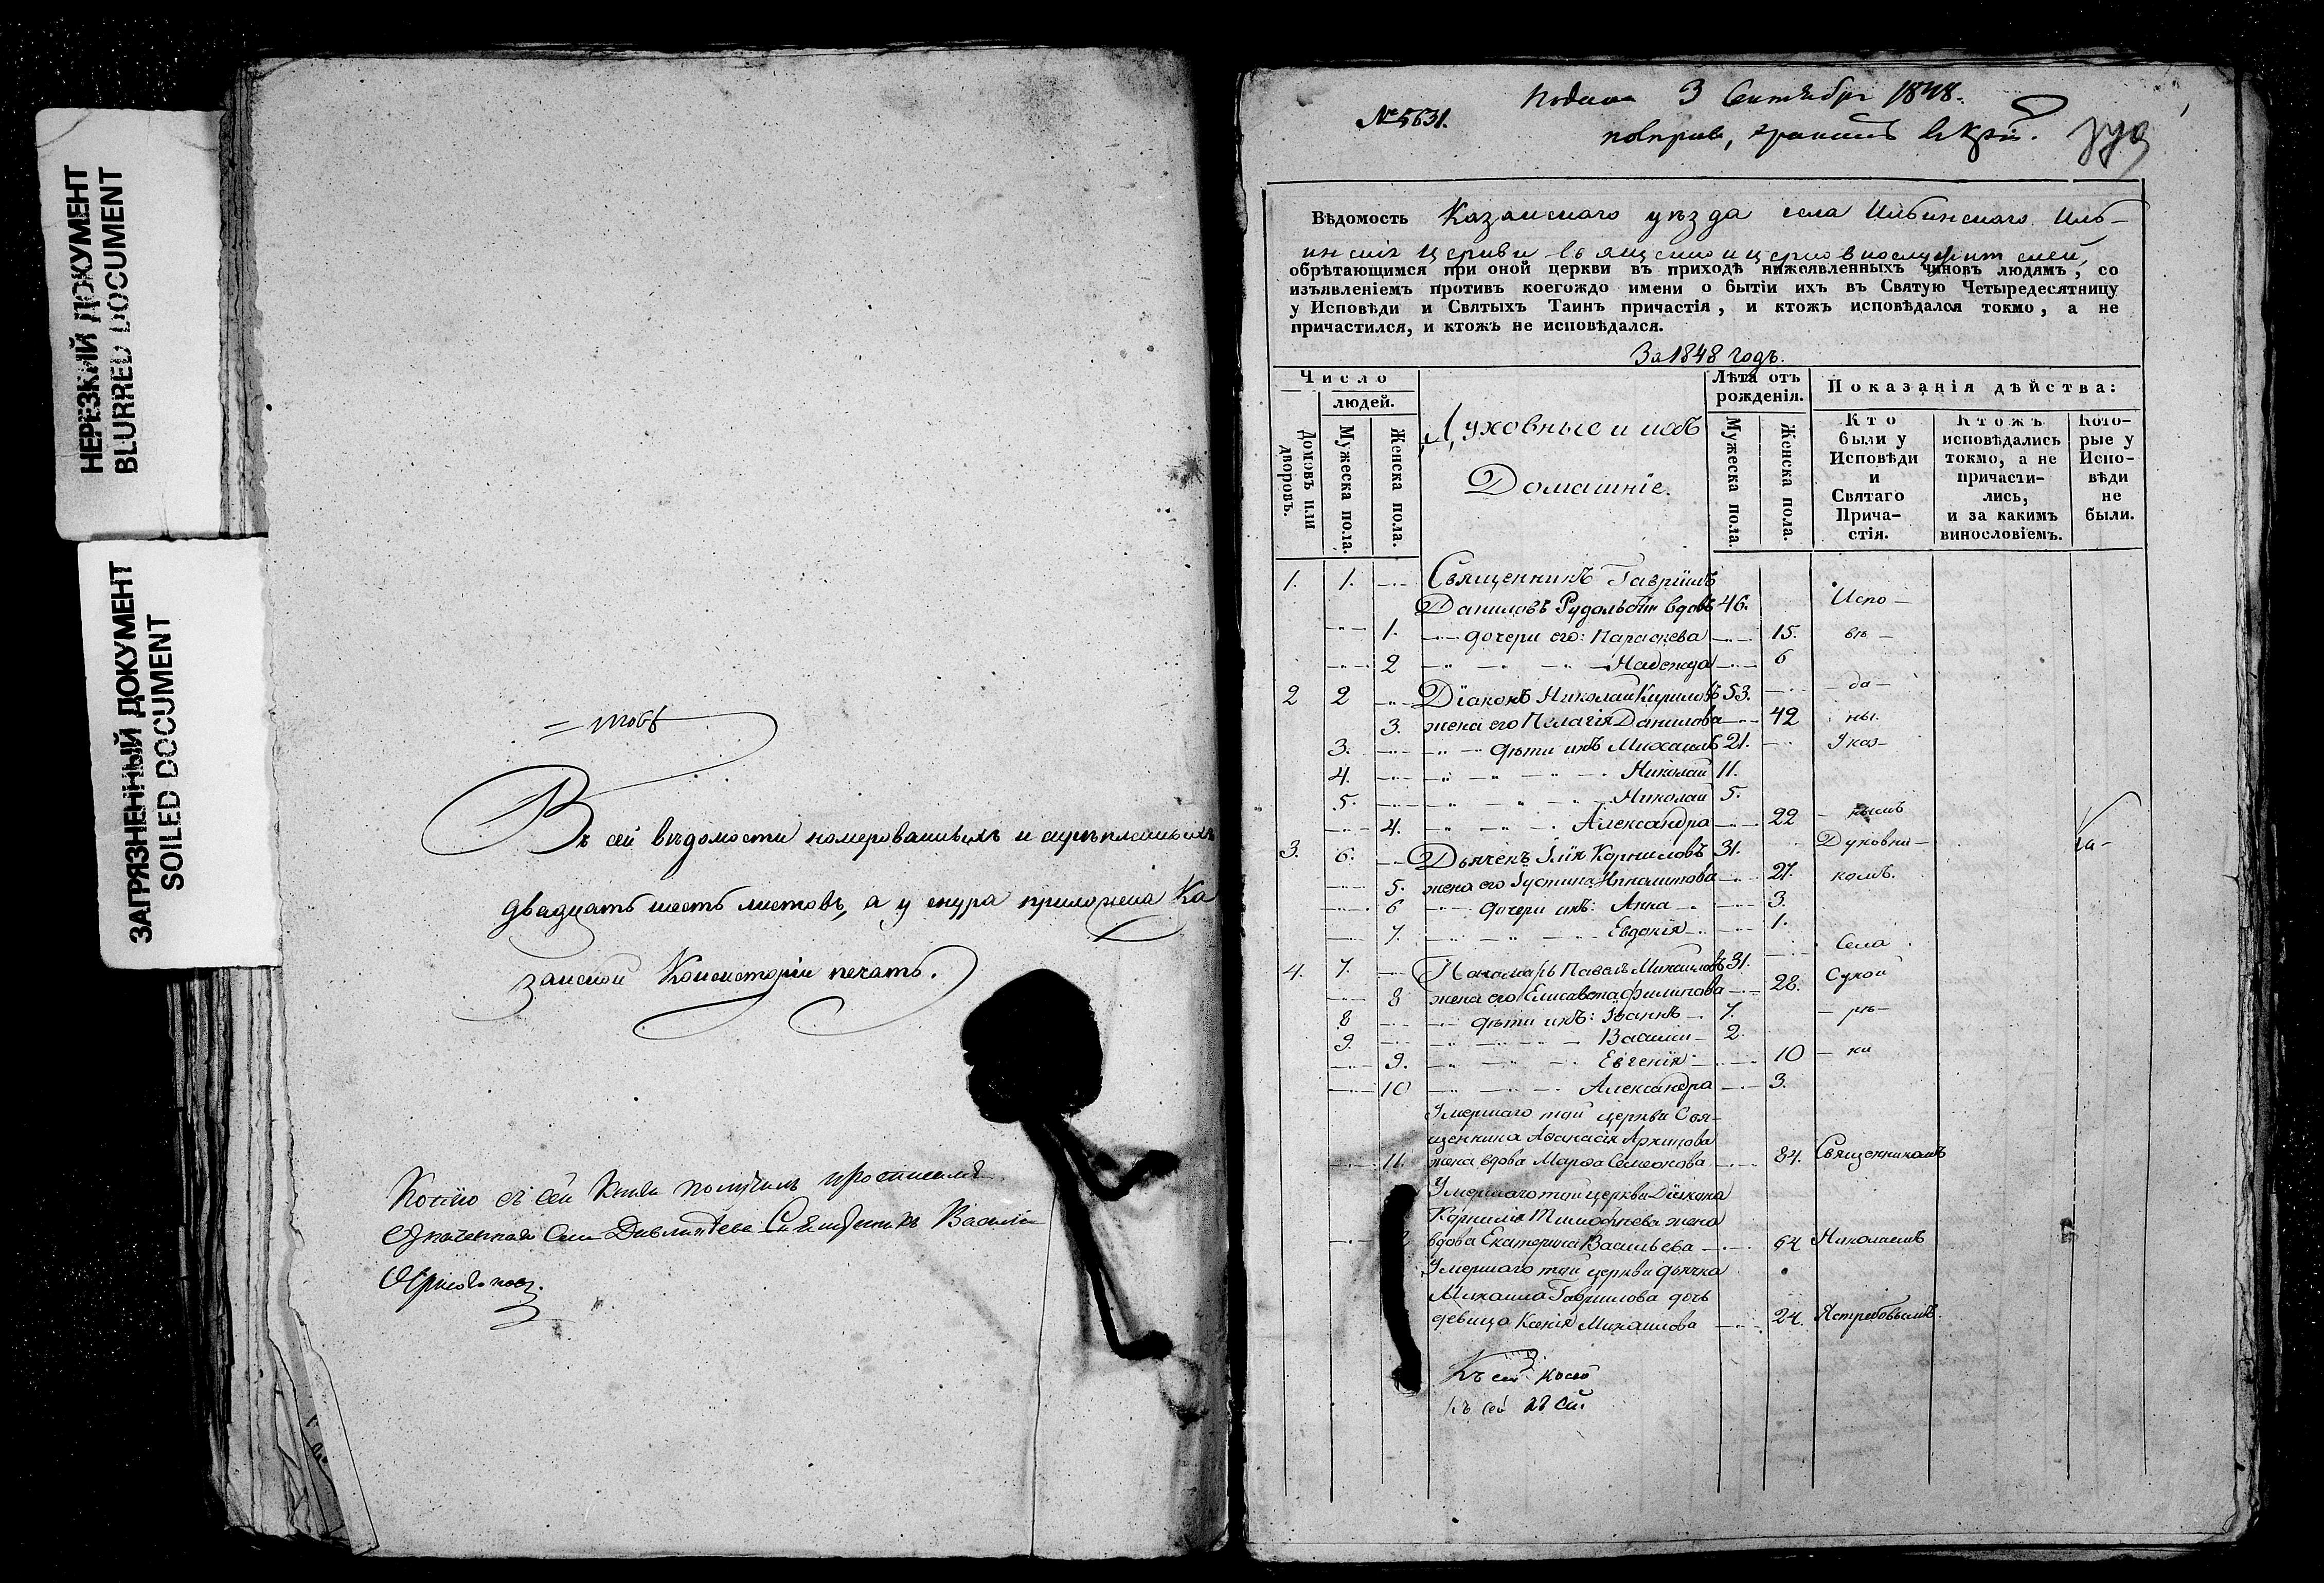 НЕРЕЗКИЙ ДОКУМЕНТ
BLURRED DOCUMENT
ЗАГРЯЗНЕННЫЙ ДОКУМЕНТ
SOILED DOCUMENT
Въ сей вѣдомости номерованныхъ и скрѣпленныхъ
двадцать шесть листовъ, а у шнура приложена Ка
занской Консисторіи печать.
Копію съ сей Книги получилъ
Села Священникъ Василій
№ 5631.
Подана 3 Сентября 1848.
Вѣдомость Казанскаго уѣзда села Ильинскаго Иль-
инскія церкви священно и церковнослужителей,
обрѣтающимся при оной церкви въ приходѣ нижеявленныхъ чиновъ людямъ, со
изъявленіемъ противъ коегождо имени о бытіи ихъ въ Святую Четыредесятницу
у Исповѣди и Святыхъ Таинъ причастія, и ктожъ исповѣдался токмо, а не
причастился, и ктожъ не исповѣдался.
За 1848 годъ.
Число
людей.
Домовъ или дворовъ.
Мужеска пола.
Женска пола.
Духовные и ихъ
Домашніе.
Лѣта отъ
рожденія.
Мужеска пола.
Женска пола.
Показанія дѣйства:
Кто
были у
Исповѣди
и
Святаго
Прича-
стія.
Ктожъ
исповѣдались
токмо, а не
причасти-
лись,
и за какимъ
винословіемъ.
Кото-
рые у
Испо-
вѣди
не
были.
1. 1. Священникъ Гавріилъ
Даниловъ вдовъ 46. Испо-
1. дочери его: Параскева 15. вѣ-
2 Надежда 6
2 2 Діаконъ Николай Кириловъ 53. да-
3. жена его Пелагія Данилова 42 ны.
3. дѣти ихъ Михаилъ 21. Указ-
4. Николай 11.
5. Николай 5.
4. Александра 22 нымъ
3. 6. Дьячекъ Илія Корниловъ 31. Духовни- Ка-
5. жена его Іустина 27. комъ.
6 дочери ихъ: Анна 3.
7. Евдокія 1.
Села
4. 7. Пономарь Павелъ Михаиловъ 31.
8 жена его Елисавета Филипова 28. Сухой
8 дѣти ихъ: Іоаннъ 7. рѣ-
9. Василій 2.
9. Евгенія 10 ки
10 Александра 3.
Умершаго той церкви Свя-
щенника Аѳанасія Архипова
11. жена вдова Марѳа Семеонова 84. Священникомъ
Умершаго той церкви Діакона
Корнилія Тимофѣева жена
вдова Екатерина Васильева 64 Николаемъ
Умершаго той церкви дьячка
Михаила Гавриилова дочь
девица Ксенія Михаилова 24. Ястребовымъ.
Къ сей
къ сей